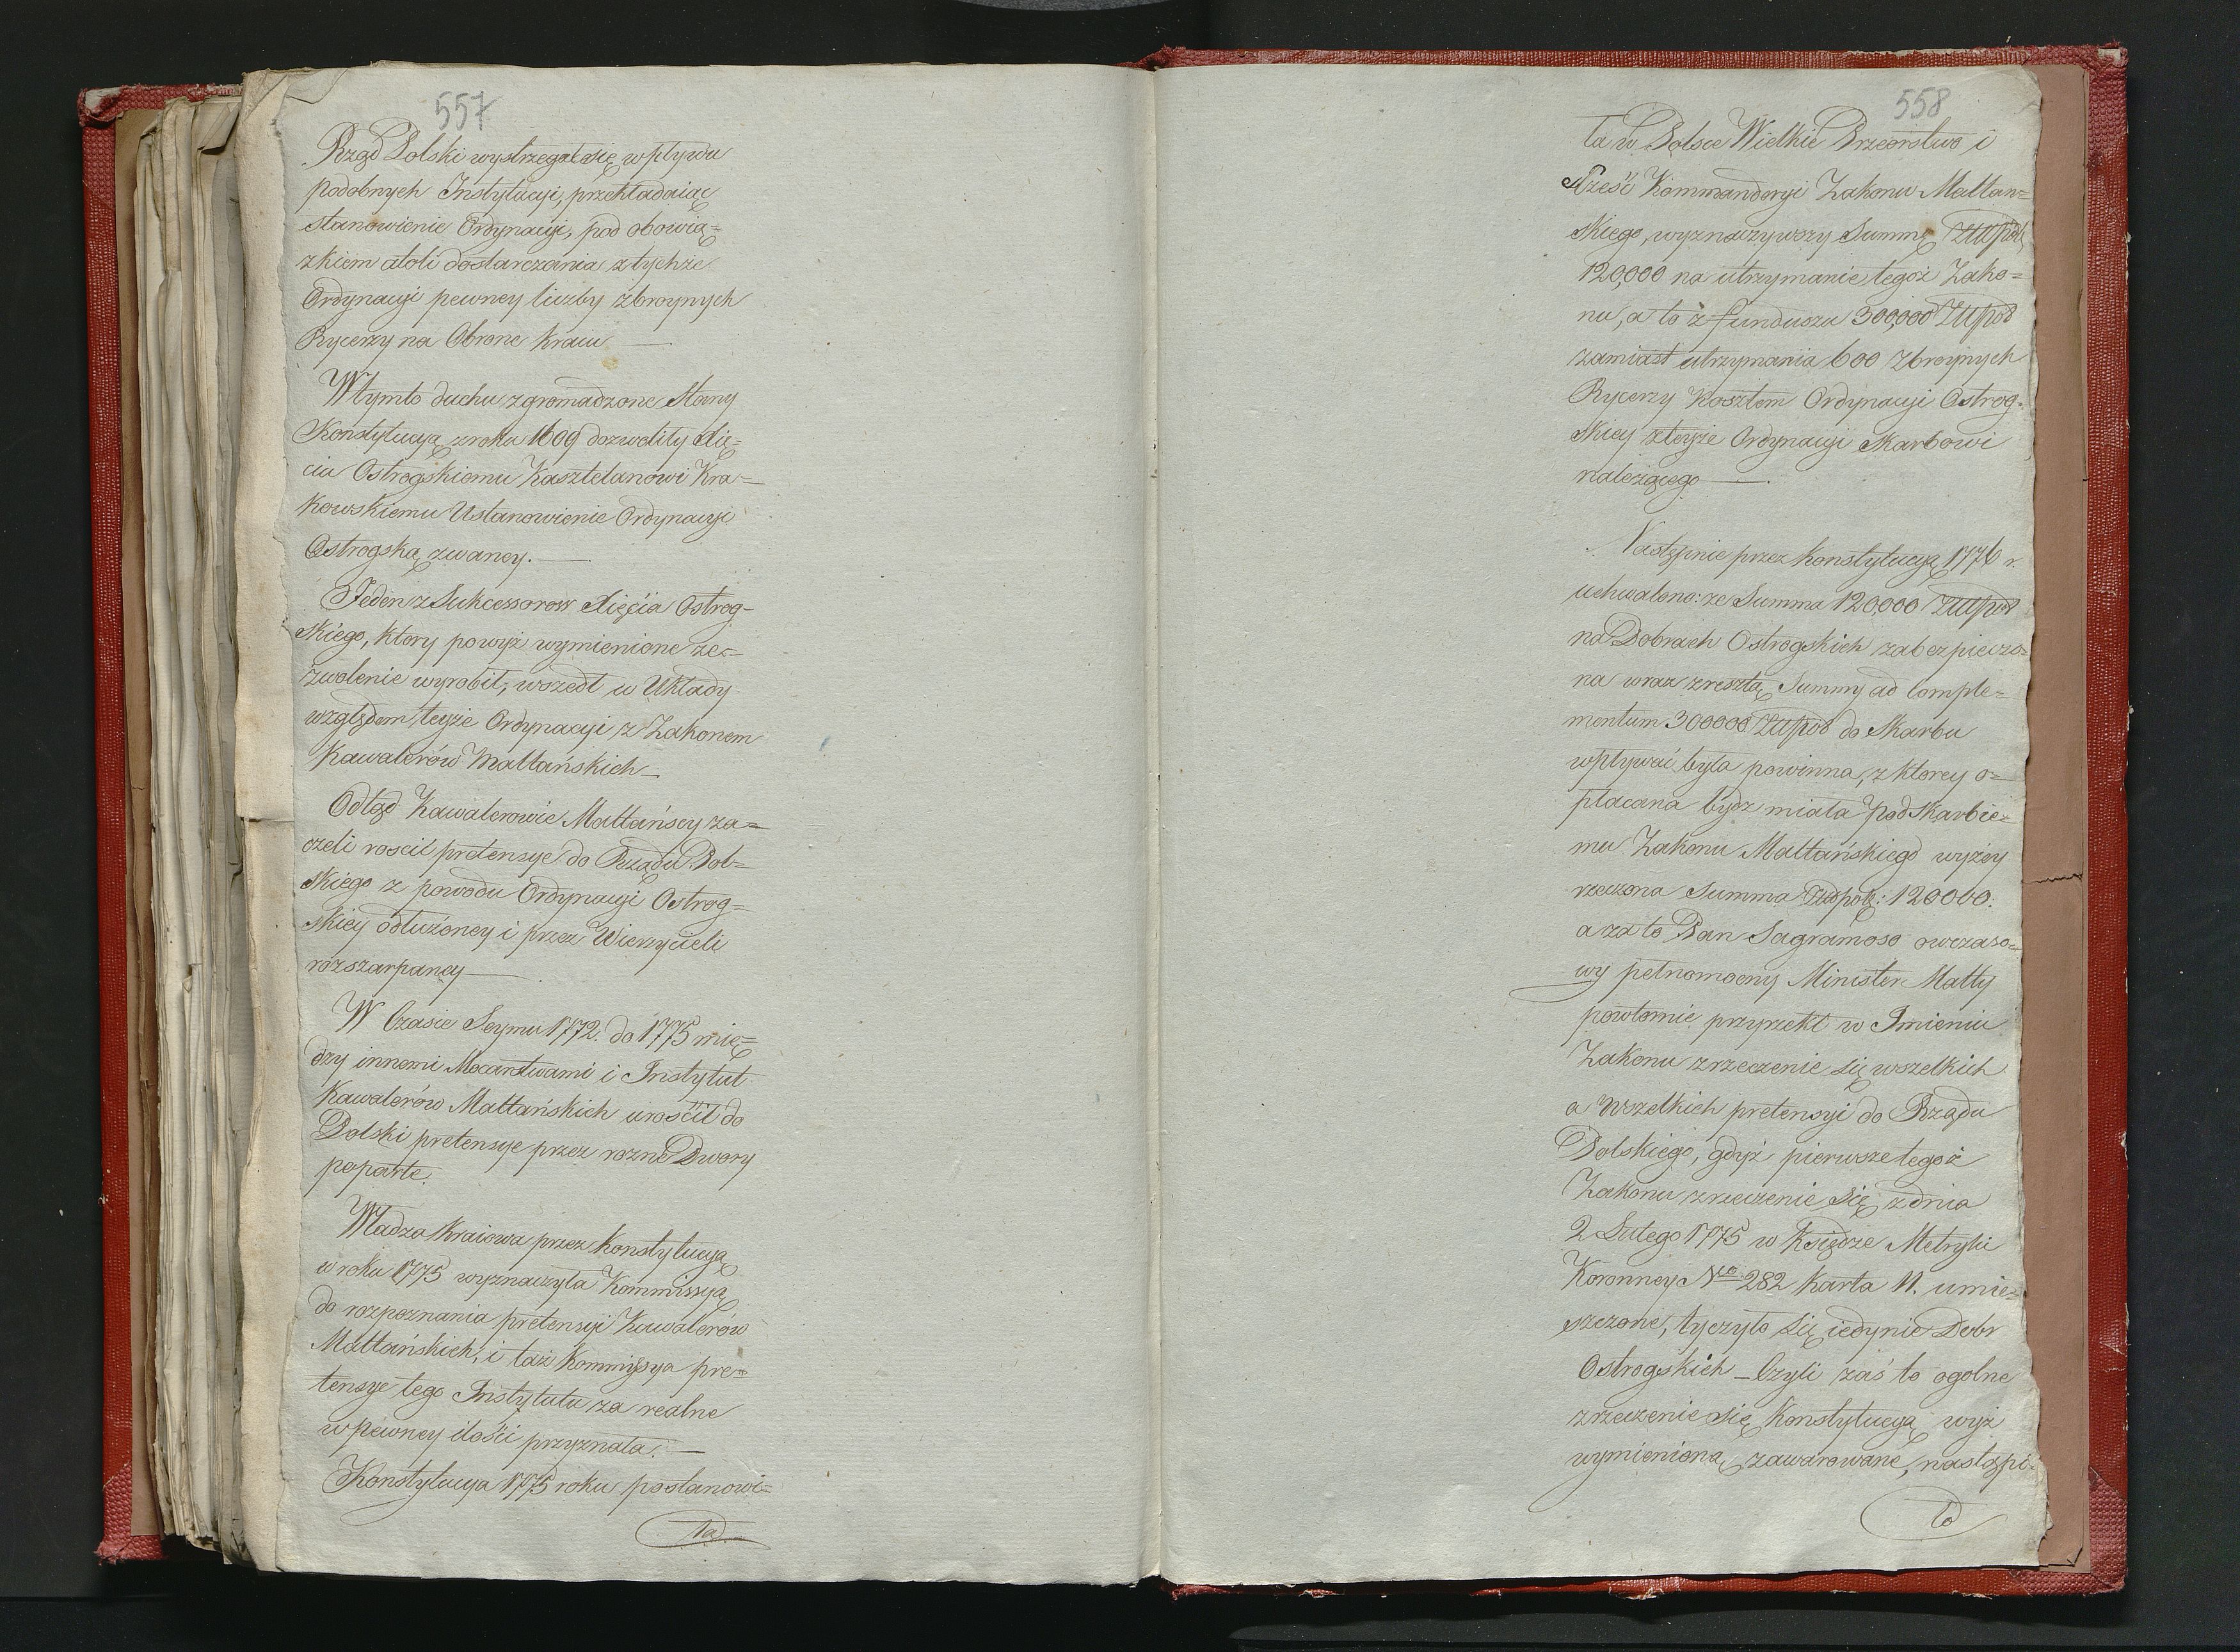 557
Rząd Polski wystrzegał się wpływu
podobnych Instytucyi, przekładaiąc
stanowienie Ordynacyi, pod obowią=
zkiem atoli dostarczania z tychże
Ordynacyi pewney liczby zbroynych
Rycerzy na Obronę Kraiu —
W tymto duchu zgromadzone Stany
Konstytucyą z roku 1609 dozwoliły Xię=
ciu Ostrogskiemu Kasztelanowi Kra=
kowskiemu Ustanowienie Ordynacyi
Ostrogską zwaney. —
Jeden z Sukcessorow Xięcia Ostrog-
skiego, ktory powyż wymienione ze=
zwolenie wyrobił, wszedł w Układy
względem teyże Ordynacyi z Zakonem
Kawalerów Maltańskich —
Odtąd Kawalerowie Maltańscy za=
czeli roscić pretensye do Rządu Pol=
skiego z powodu Ordynacyi Ostrog=
skiey odłużoney i przez Wierzycieli
rozszarpaney —
W Czasie Seymu 1772. do 1775 mię=
dzy innemi Mocarstwami i Instytut
Kawalerów Maltańskich urościł do
Polski pretensye przez rozne Dwory
poparte.
Władza Kraiowa przez Konstytucyą
w roku 1775 wyznaczyła Kommissyą
do rozpoznania pretensyi Kawalerów
Maltańskich, i taż Kommissya pre=
tensye tego Instytutu za realne
w pewney ilości przyznała. —
Konstytucya 1775 roku postanowi=
ła
558
ła w Polsce Wielkie Przeorstwo i
Sześć Kommandoryi Zakonu Maltan=
skiego, wyznaczywszy Summę Złłpol
120,000 na utrzymanie tegoż Zako=
nu, a to z funduszu 300,000 Złłpol
zamiast utrzymania 600 Zbroynych
Rycerzy Kosztem Ordynacyi Ostrog-
skiey z teyże Ordynacyi Skarbowi
należącego —
Następnie przez Konstytucyą 1776 r.
uchwalono: ze Summa 120,000 Złłpol
na Dobrach Ostrogskich zabezpieczo=
na wraz z resztą Summy ad comple=
mentum 300000 Złłpol do Skarbu
wpływać była powinna, z ktorey o=
płacana bydz miała Podskarbie=
mu Zakonu Maltańskiego wyżey
rzeczona Summa Złłpol: 120000.
a za to Pan Sagramoso owczaso=
wy pełnomocny Minister Malty
powtornie przyrzekł w Imieniu
Zakonu zrzeczenie się wszelkich
a wszelkich pretensyi do Rządu
Polskiego, gdyż pierwsze tegoż
Zakonu zrzeczenie się z dnia
2 Lutego 1775 w Księdze Metryki
Koronney Nro 282 Karta 11. umie=
szczone, tyczyło się iedynie Dobr
Ostrogskich — Czyli zaś to ogolne
zrzeczenie się Konstytucyą wyż
wymienioną zawarowane, nastąpi=
ło